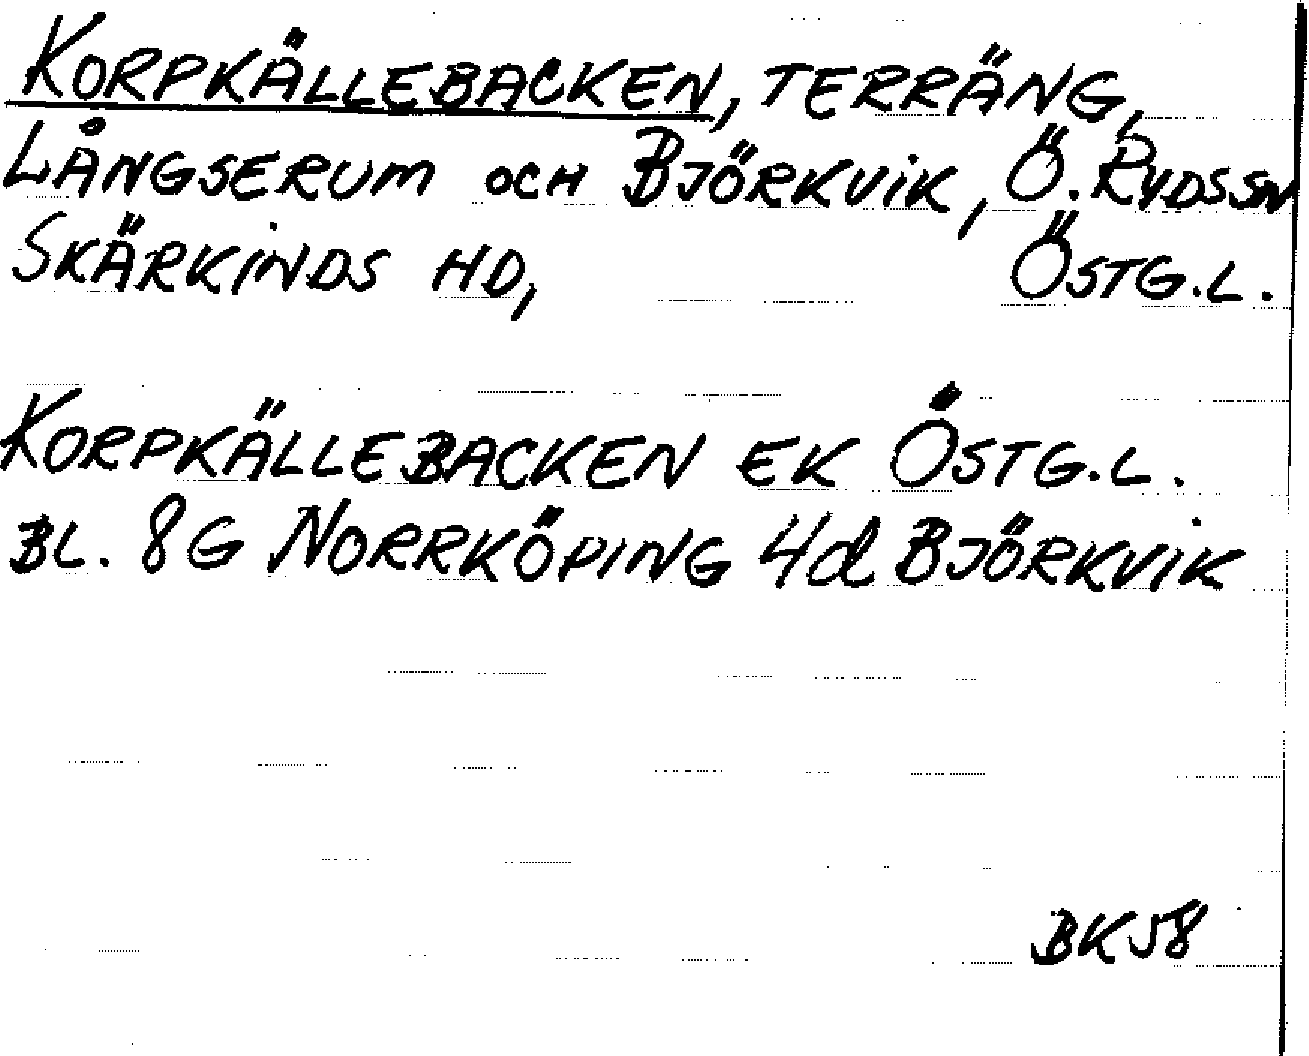 KORPKÄLLEBACKEN, TERRÄNG,
LÅNGSERUM OCH BJÖRKVIK, Ö. RYDS SN
SKÄRKINDS HD, ÖSTG.L.
KORPKÄLLEBACKEN EK ÖSTG.L.
BL. 8G NORRKÖPING 4d BJÖRKVIK
BK58